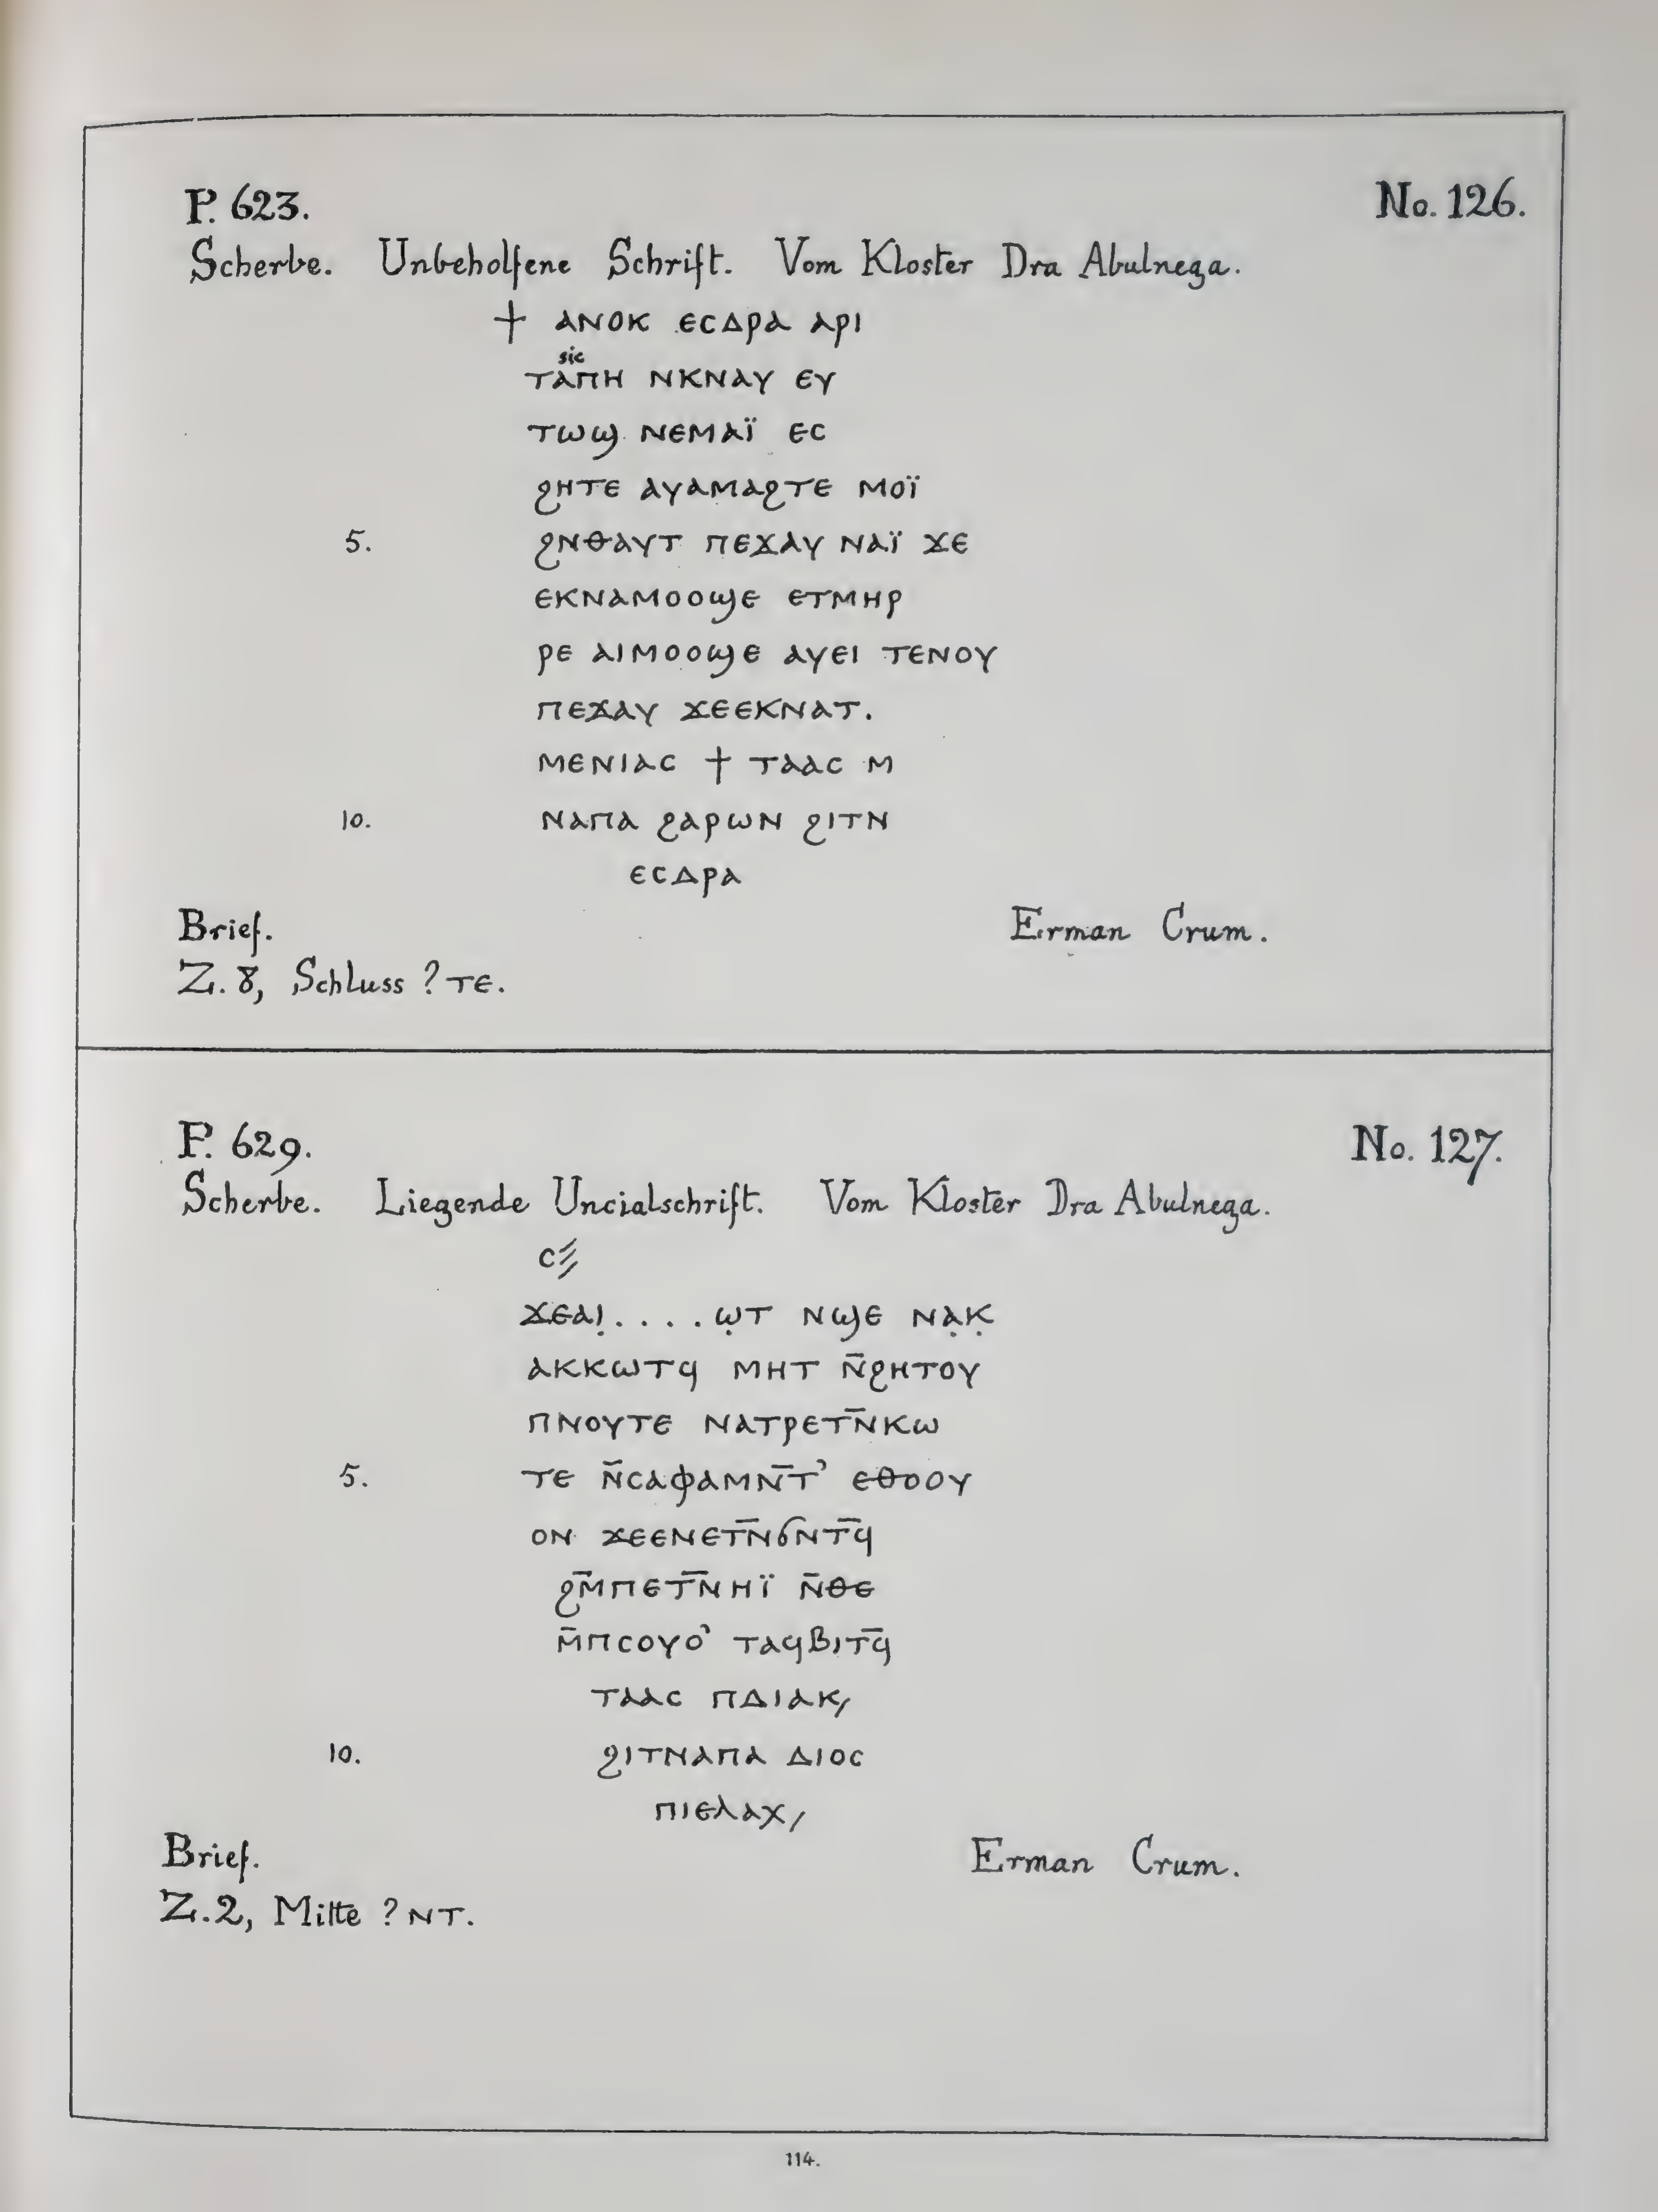 P. 623. No. 126.
Scherbe. Unbeholfene Schrift. Vom Kloster Dra Abulnega.
† ⲁⲛⲟⲕ ⲉⲥⲇⲣⲁ ⲁⲣⲓ
sic
ⲧⲁⲡⲏ ⲛⲕⲛⲁⲩ ⲉⲩ
ⲧⲱϣ ⲛⲉⲙⲁⲓ̈ ⲉⲥ
ϩⲏⲧⲉ ⲁⲩⲁⲙⲁϩⲧⲉ ⲙⲟⲓ̈
5. ϩⲛⲑⲁⲩⲧ ⲡⲉϫⲁⲩ ⲛⲁⲓ̈ ϫⲉ
ⲉⲕⲛⲁⲙⲟⲟϣⲉ ⲉⲧⲙⲏⲣ
ⲣⲉ ⲁⲓⲙⲟⲟϣⲉ ⲁⲩⲉⲓ ⲧⲉⲛⲟⲩ
ⲡⲉϫⲁⲩ ϫⲉⲉⲕⲛⲁⲧ.
ⲙⲉⲛⲓⲁⲥ † ⲧⲁⲁⲥ ⲙ
10. ⲛⲁⲡⲁ ϩⲁⲣⲱⲛ ϩⲓⲧⲛ
ⲉⲥⲇⲣⲁ
Brief. Erman Crum.
Z. 8, Schluss ? ⲧⲉ.
P. 629. No. 127.
Scherbe. Liegende Uncialschrift. Vom Kloster Dra Abulnega.
ⲥ⳽
ϫⲉⲁⲓ̣....ⲱ̣ⲧ ⲛϣⲉ ⲛⲁ̣ⲕ̣
ⲁⲕⲕⲱⲧϥ ⲙⲏⲧ ⲛ̄ϩⲏⲧⲟⲩ
ⲡⲛⲟⲩⲧⲉ ⲛⲁⲧⲣⲉⲧⲛ̄ⲕⲱ
5. ⲧⲉ ⲛ̄ⲥⲁⲫⲁⲙⲛ̄ⲧ’ ⲉⲑⲟⲟⲩ
ⲟⲛ ϫⲉⲉⲛⲉⲧⲛ̄ϭⲛⲧϥ̄
ϩⲙ̄ⲡⲉⲧⲛ̄ⲏⲓ̈ ⲛ̄ⲑⲉ
ⲙ̄ⲡⲥⲟⲩⲟ’ ⲧⲁϥⲃⲓⲧϥ̄
ⲧⲁⲁⲥ ⲡⲇⲓⲁⲕ/
10. ϩⲓⲧⲛⲁⲡⲁ ⲇⲓⲟⲥ
ⲡⲓⲉⲗⲁⲭ/
Brief. Erman Crum.
Z. 2, Mitte ? ⲛⲧ.
114.